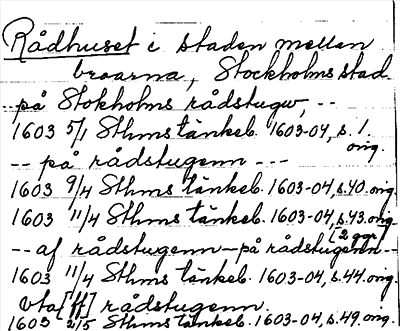 Rådhuset i staden mellan
broarna, Stockholms stad
-- på Stokholms rådstugw, --
1603 5/1 Sthms tänkeb. 1603-04, s. 1.
orig.
-- på rådstugenn ---
1603 9/4 Sthms tänkeb. 1603-04, s.40. orig.
1603 11/4 Sthms tänkeb. 1603-04, s.43. orig.
[2 ggr
-- af rådstugenn - på rådstugenn --
1603 11/4 Sthms tänkeb. 1603-04, s.44. orig.
vta [ff] rådstugenn.
1603 2/5 Sthms tänkeb. 1603-04, s.49. orig.